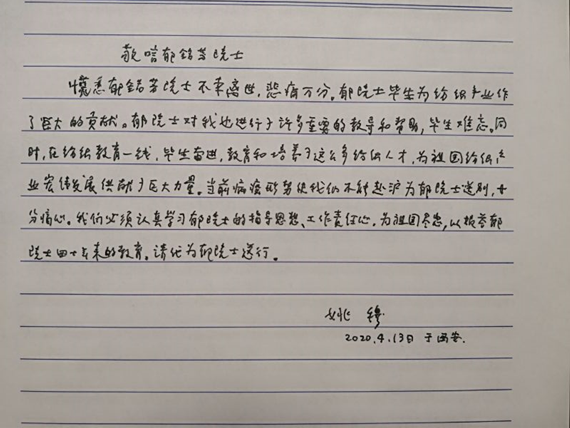 敬唁郁铭芳院士
惊悉郁铭芳院士不幸离世,悲痛万分。郁院士毕生为纺织产业作
了巨大的贡献。郁院士对我也进行了许多重要的教导和帮助,毕生难忘。同
时,在纺织教育一线,毕生奋进,教育和培养了这么多纺织人才,为祖国纺织产
业宏伟发展供献了巨大力量。当前病疫形势使我们不能赴沪为郁院士送别,十
分痛心。我们必须认真学习郁院士的指导思想、工作责任心,为祖国尽忠,以报答郁
院士四十多年来的教育。请代为郁院士送行。
姚 穆
2020.4.13日 于西安.